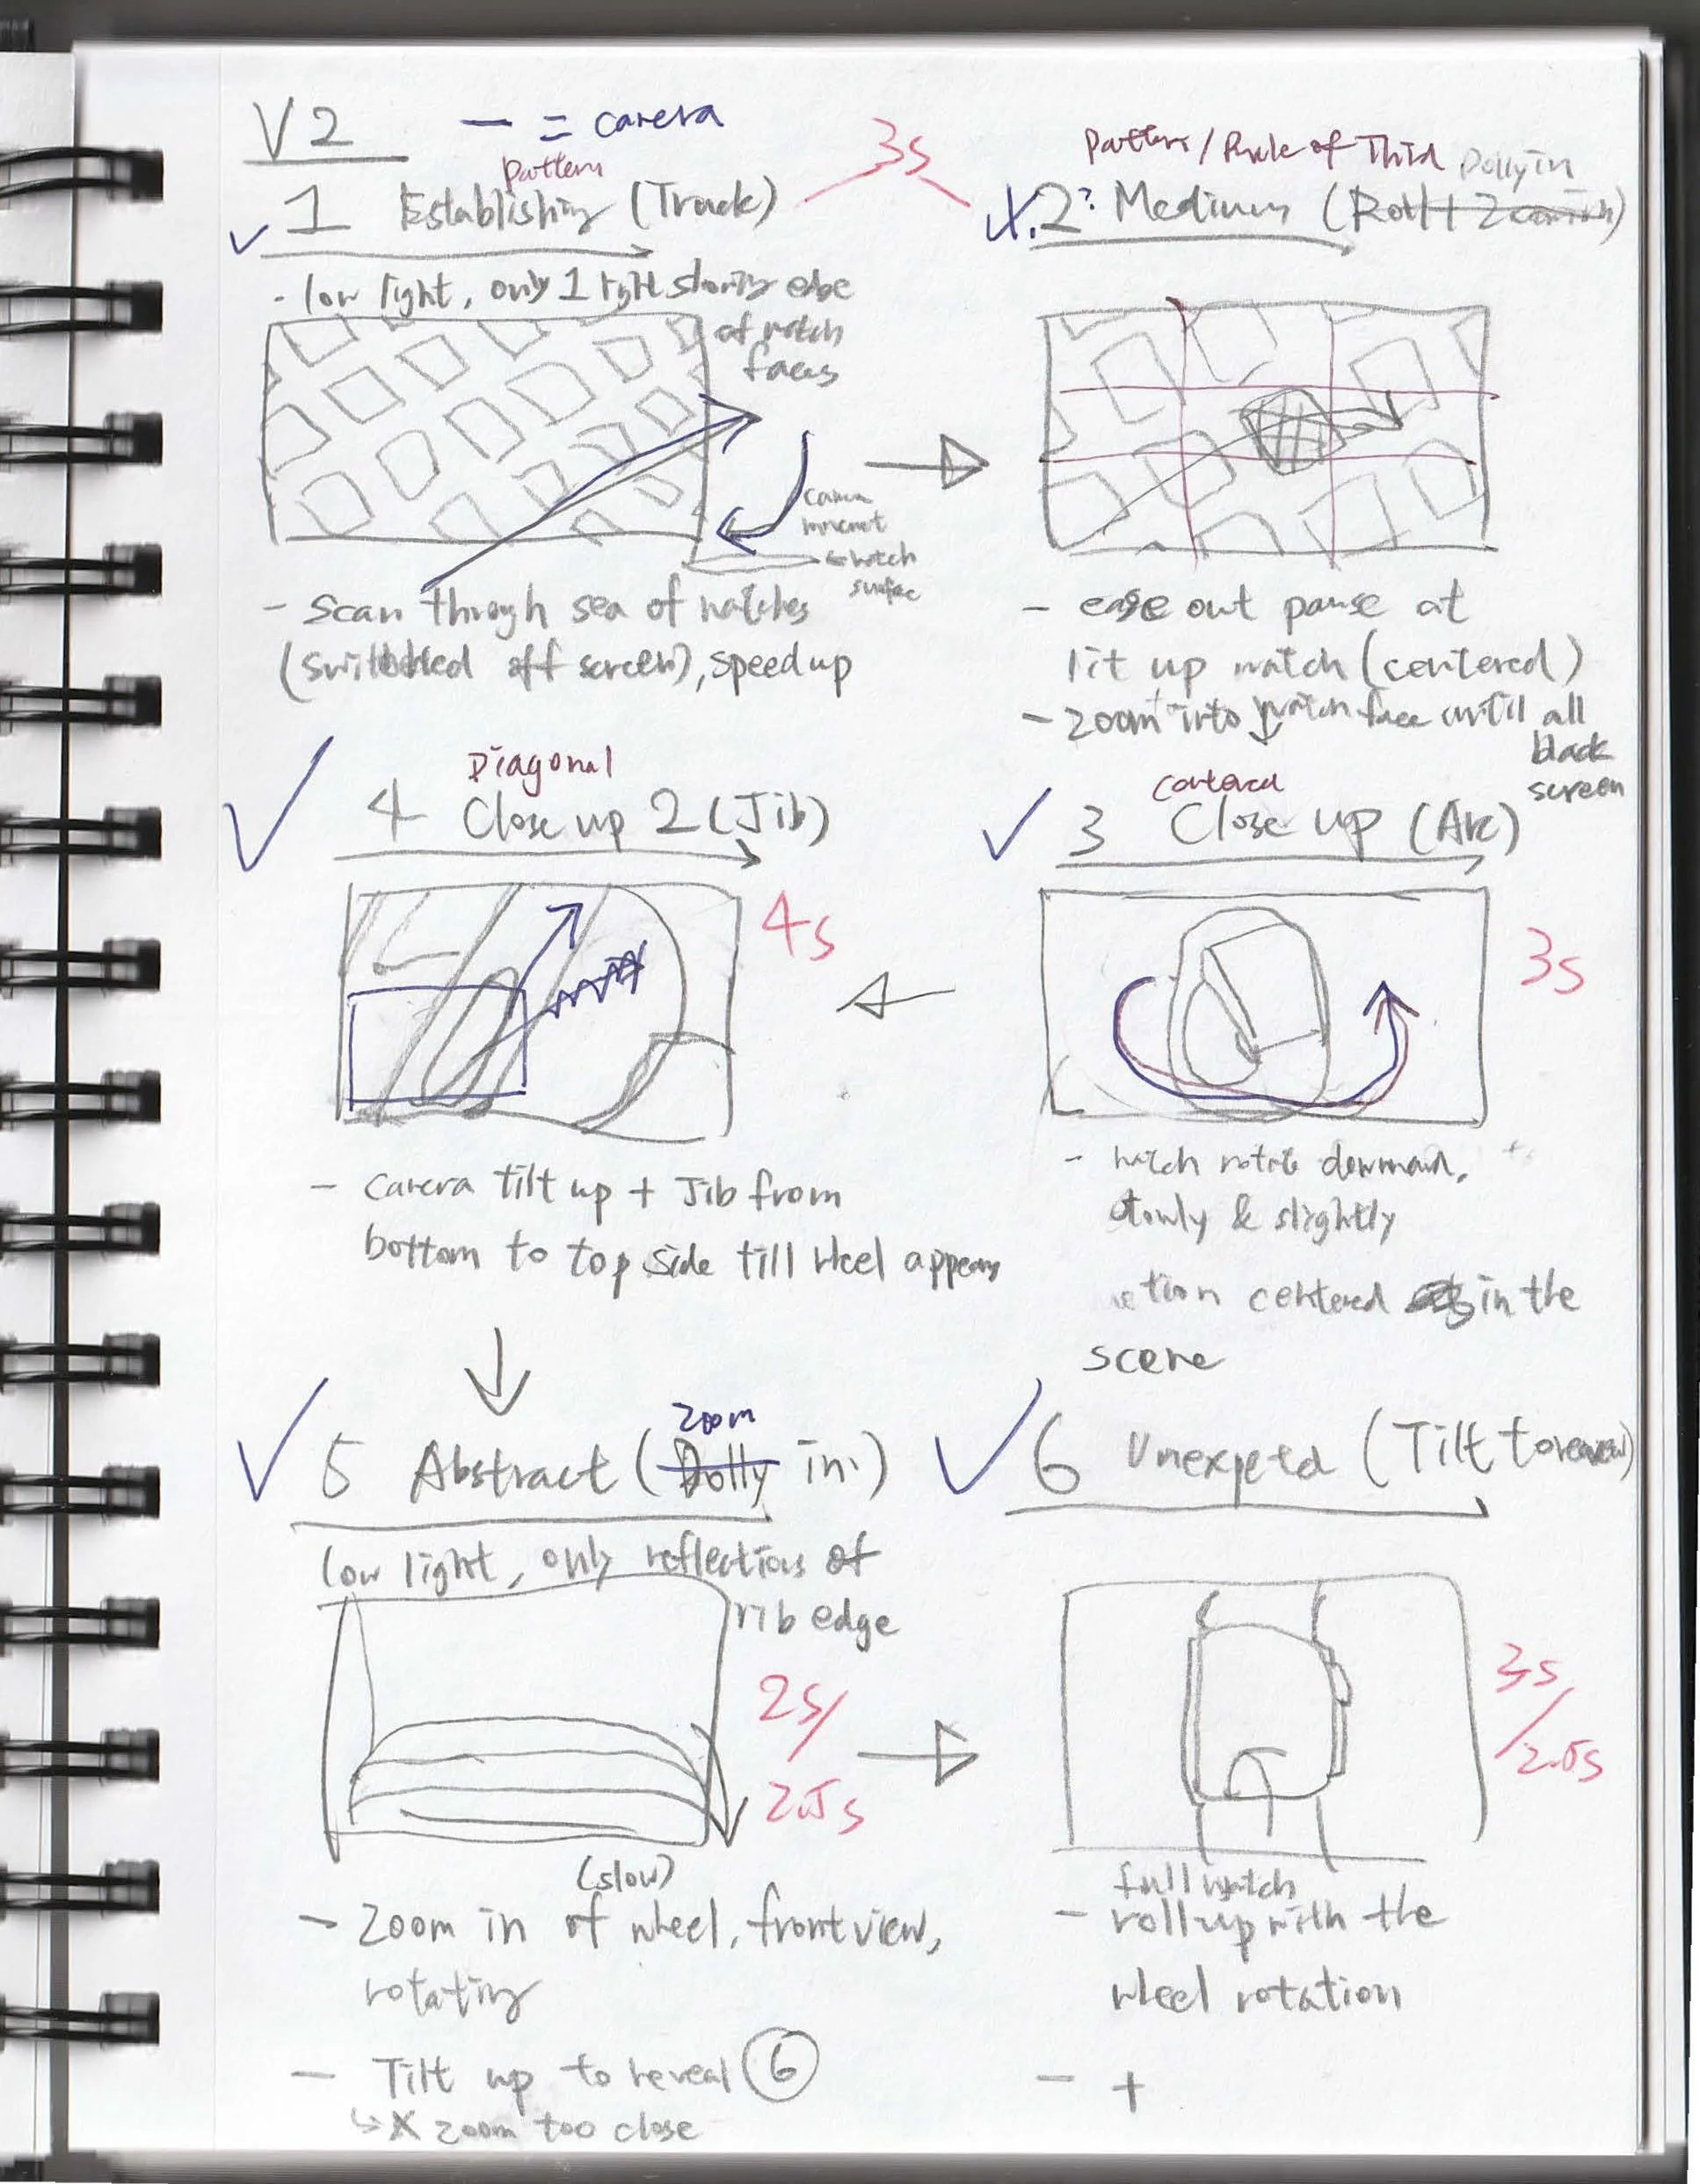 V2
— = camera
3s
pattern
1 Establishing (Truck)
- low light, only 1 light showing edge
of watch
faces
camera
movement
← watch
surface
- Scan through sea of watches
(switched off screen), speed up
Pattern / Rule of Third
Dolly in
X.2? Medium (Roll + Zoom in)
- ease out pause at
lit up watch (centered)
- zoom into watch face until all
black
screen
Diagonal
4 Close up 2 (Jib)
4s
- camera tilt up + Jib from
bottom to top side till wheel appears
centered
3 Close up (Arc)
3s
- watch rotate downward,
slowly & slightly
centered in the
scene
Zoom
5 Abstract (Dolly in)
low light, only reflections of
rib edge
2s/
2.5s
(slow)
- Zoom in of wheel, front view,
rotating
- Tilt up to reveal 6
↳ X zoom too close
6 Unexpected (Tilt to reveal)
3s
/
2.5s
full watch
- roll up with the
wheel rotation
- +